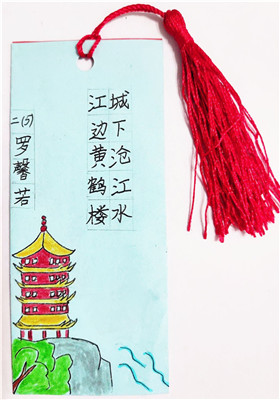 城下沧江水
江边黄鹤楼
二(5)
罗馨若